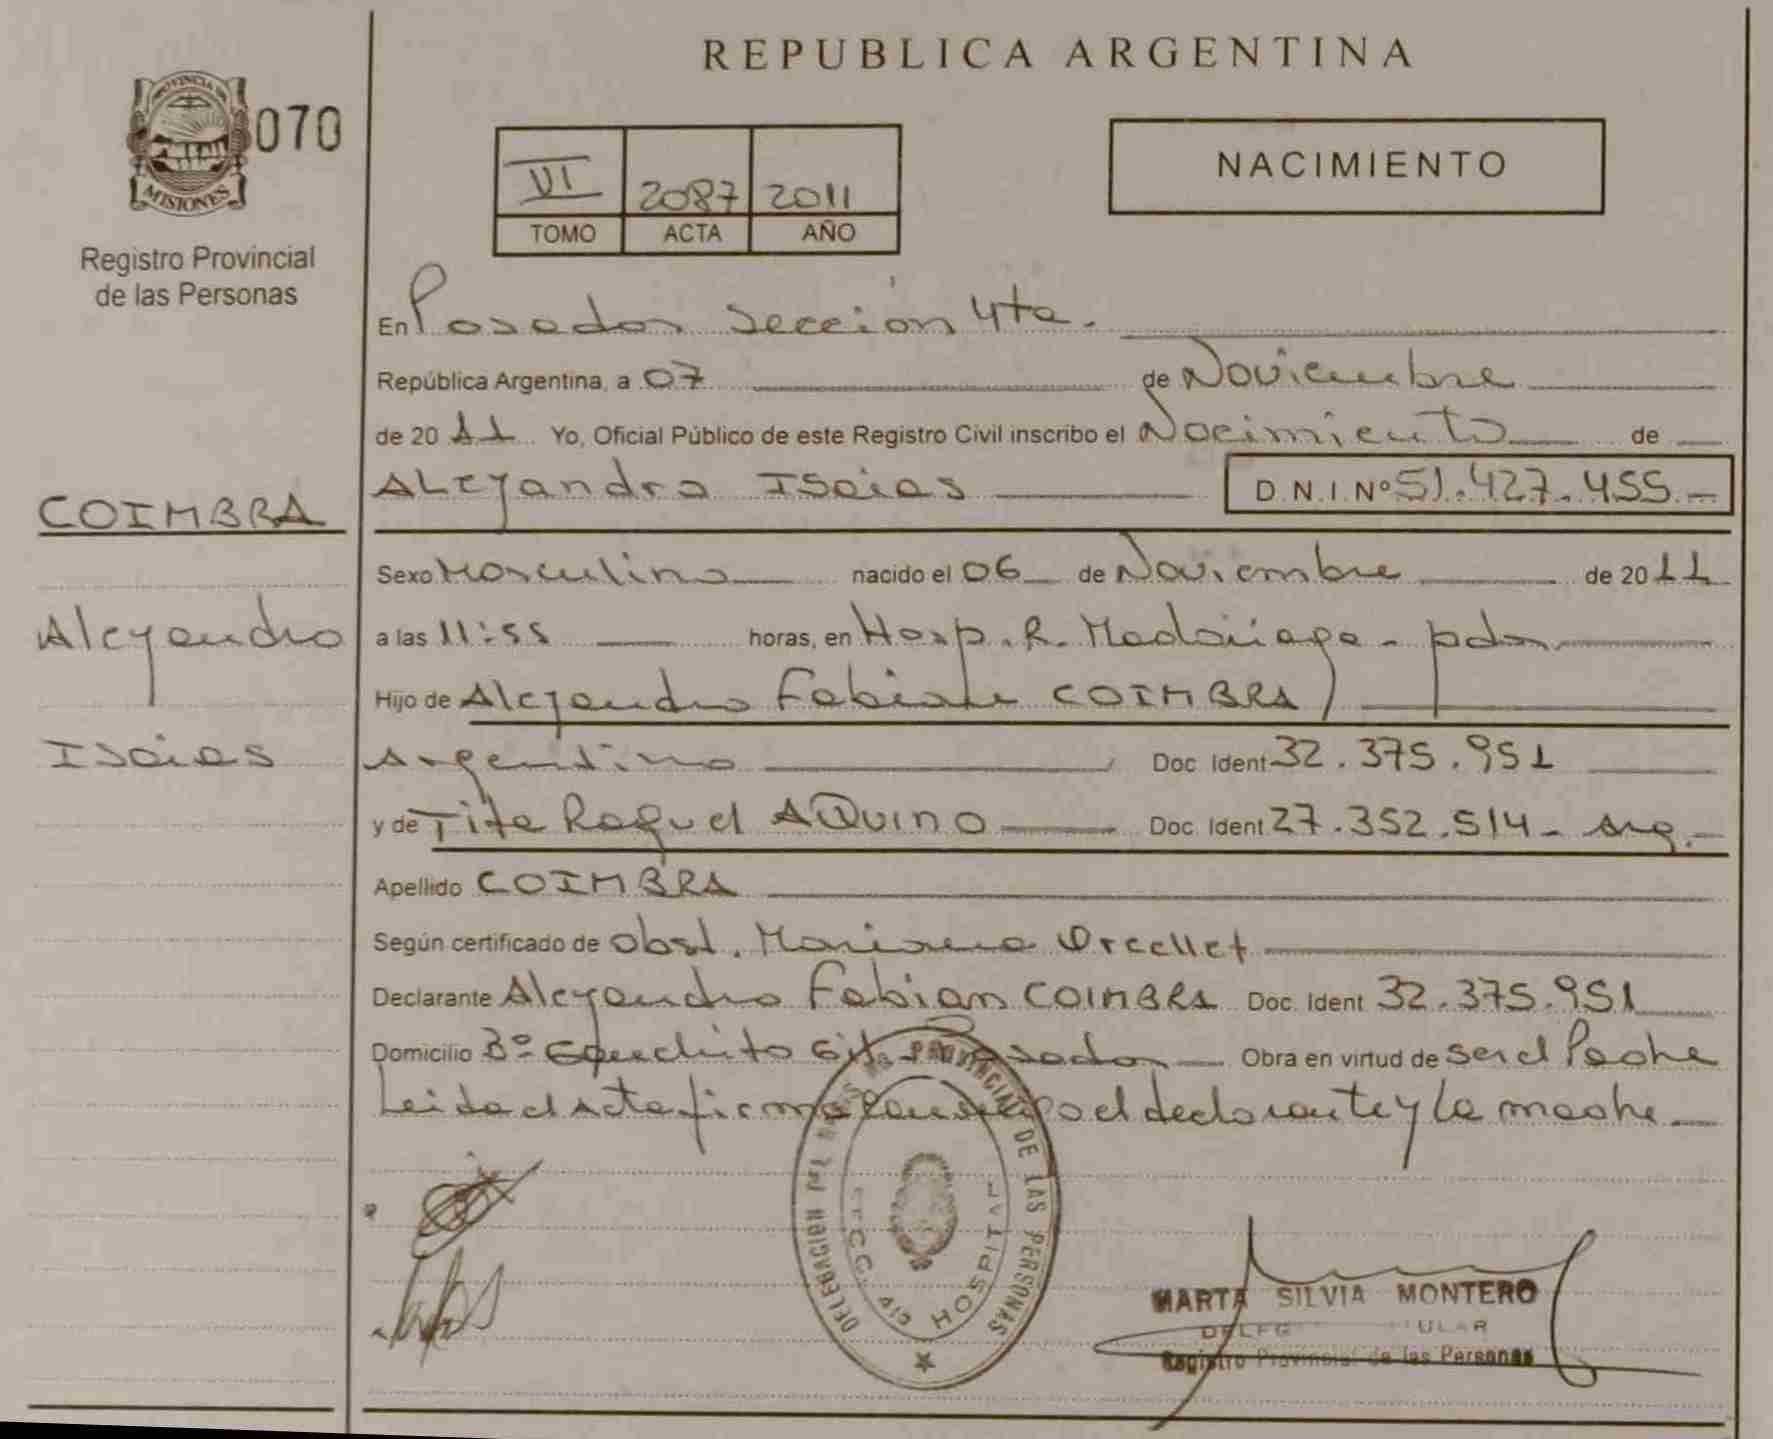 REPUBLICA ARGENTINA
PROVINCIA DE
MISIONES
070
Registro Provincial
de las Personas
VI 2087 2011
TOMO ACTA AÑO
NACIMIENTO
En Posadas Sección 4ta.
República Argentina, a 07 de Noviembre
de 2011 Yo, Oficial Público de este Registro Civil inscribo el Nacimiento de
Alejandro Isaias D.N.I Nº 51.427.455.-
COIMBRA
Alejandro
Isaias
Sexo Masculino nacido el 06 de Noviembre de 2011
a las 11:55 horas, en Hosp. R. Madariaga - pdas
Hijo de Alejandro Fabian COIMBRA
Argentino Doc Ident 32.375.951
y de Tita Raquel AQUINO Doc Ident 27.352.514- Arg.-
Apellido COIMBRA
Según certificado de obst. Mariana
Declarante Alejandro Fabian COIMBRA Doc. Ident 32.375.951
Domicilio Bº Posadas Obra en virtud de ser el Padre
Leida el Acta firma conmigo el declarante y la madre
DELEGACION DEL REGISTRO PROVINCIAL DE LAS PERSONAS
SECC. 4ta HOSPITAL
MARTA SILVIA MONTERO
Registro Provincial de las Personas